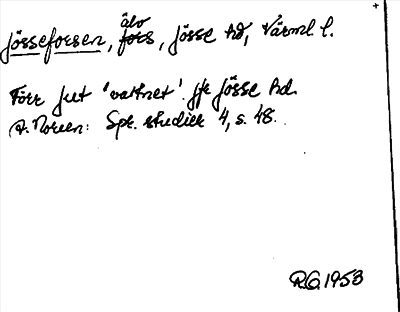 älv
Jösseforsen, fors, Jösse hd, Värml. l.
Förr Jut 'vattnet'. Jfr Jösse hd.
A. Noreen: Spr. studier 4, s. 48.
R.O. 1953